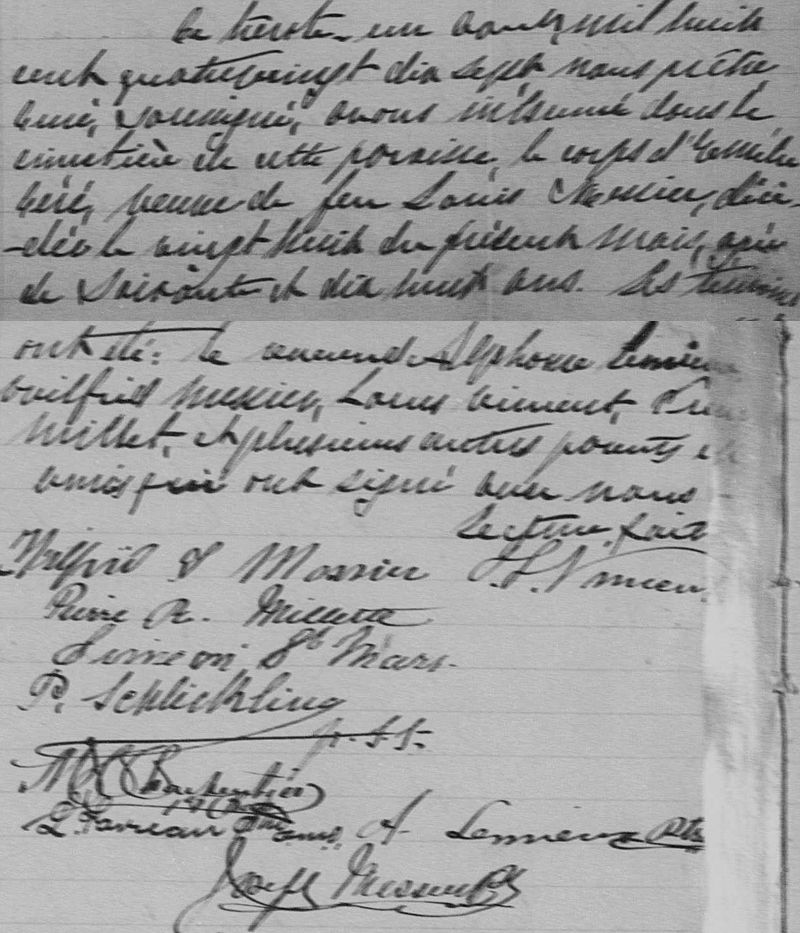 Le trente-un août mil huit
cent quatrevingt dix sept nous prêtre
Curé, soussigné, avons inhumé dans le
cimetière de cette paroisse, le corps d'Emélie
veuve de feu Louis Messier, décé-
-dée le vingt huit du présent mois, agée
de soixante et dix huit ans. Les témoins
ont été: le révérend Alphonse Lemieux
Wilfrid Messier, Louis Vincent,
Millet, et plusieurs autres parents et
amis qui ont signé avec nous
Lecture faite
Wilfrid Messier L. Vincent
Pierre R. Millette
Simeon St Mars.
P. Schlickling
p.s.s.
Charpentier
A. Lemieux Ptre
Joseph Messier Pt